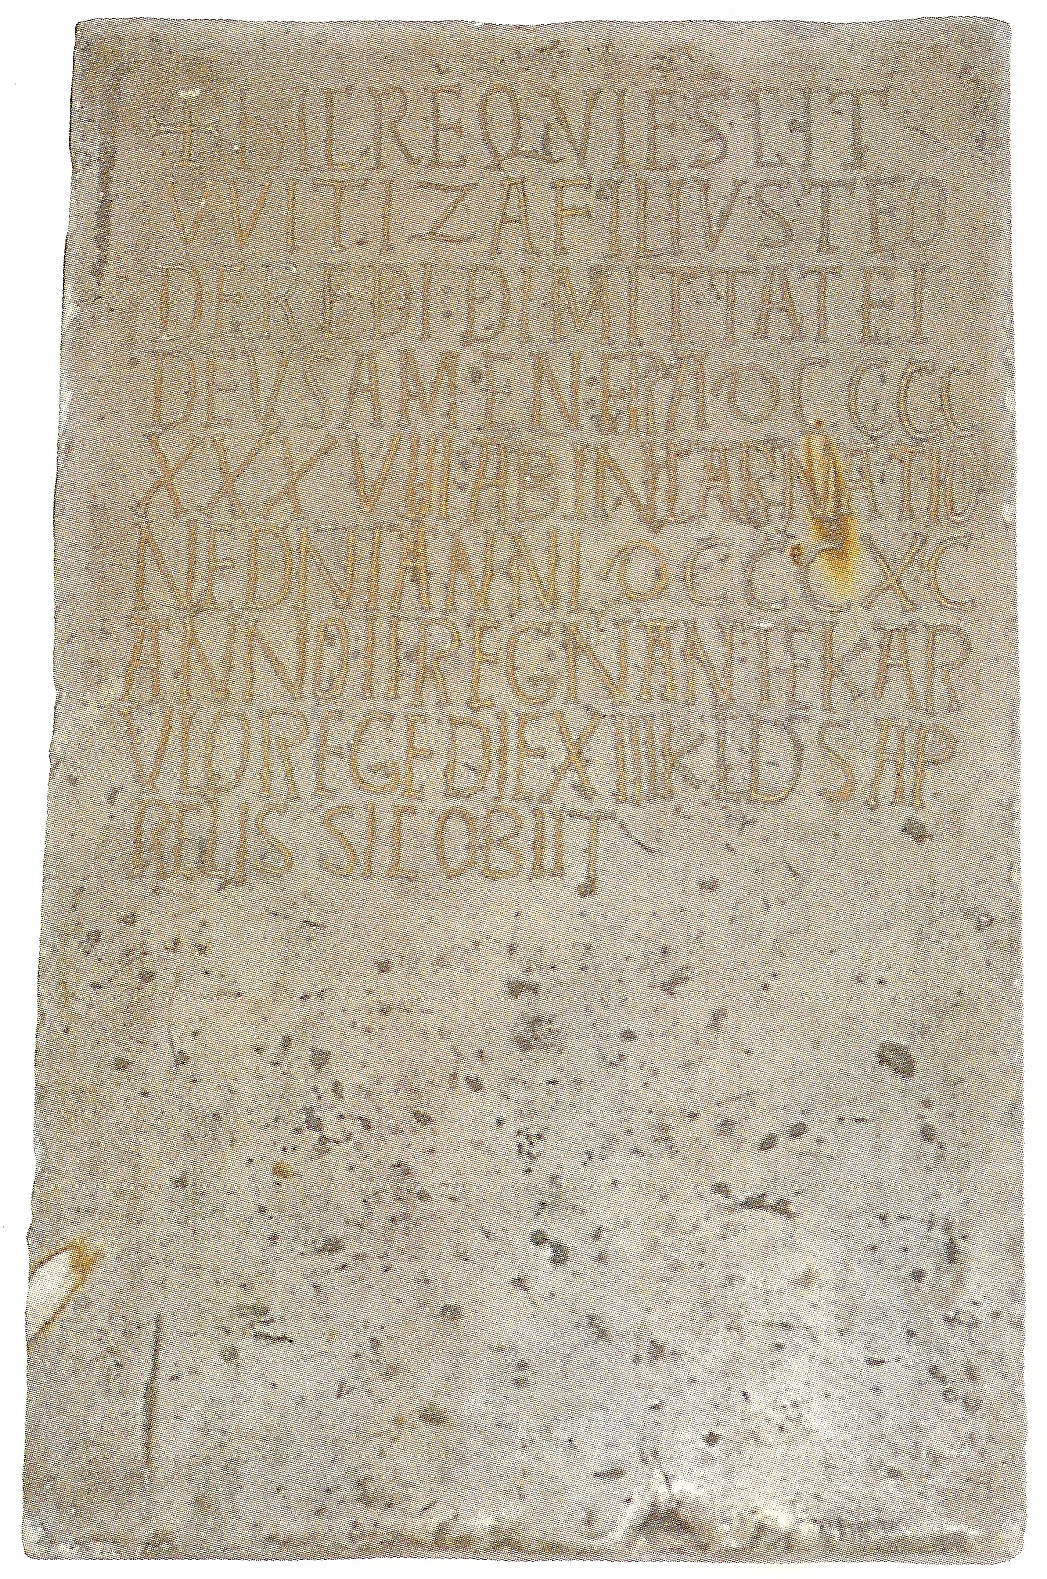 + HIC REQVIESCIT
VVITIZA FILIVS TEO
DEREDI DIMITTAT EI
DEVS AMEN ERA DCCCC
XXXVIII AB INCARNATIO
NE DNI ANNI DCCCXC
ANNO II REGNANTE KAR
VLO REGE DIE XIII KLDS AP
RELIS SIC OBIIT